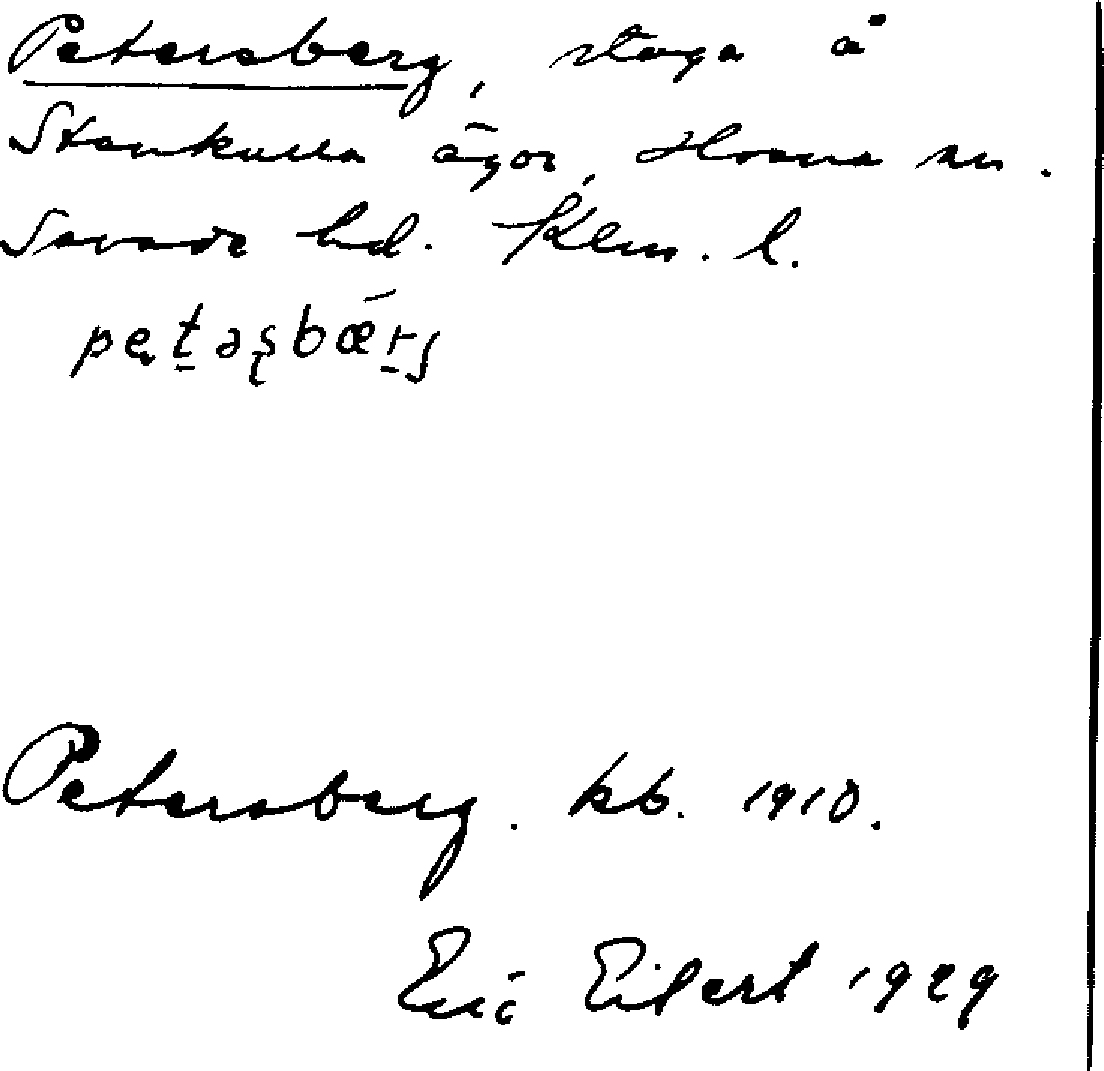 Petersberg, stuga å
Stenkulla ägor, Hvena sn.
Sevede hd. Klm. l.
pętəʂbǽrj
Petersberg. kb. 1910.
Eric Eilert 1929